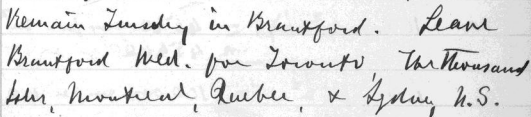 Remain Tuesday in Brantford. Leave
Brantford Wed. for Toronto, The Thousand
Isles, Montreal, Quebec, & Sydney N.S.